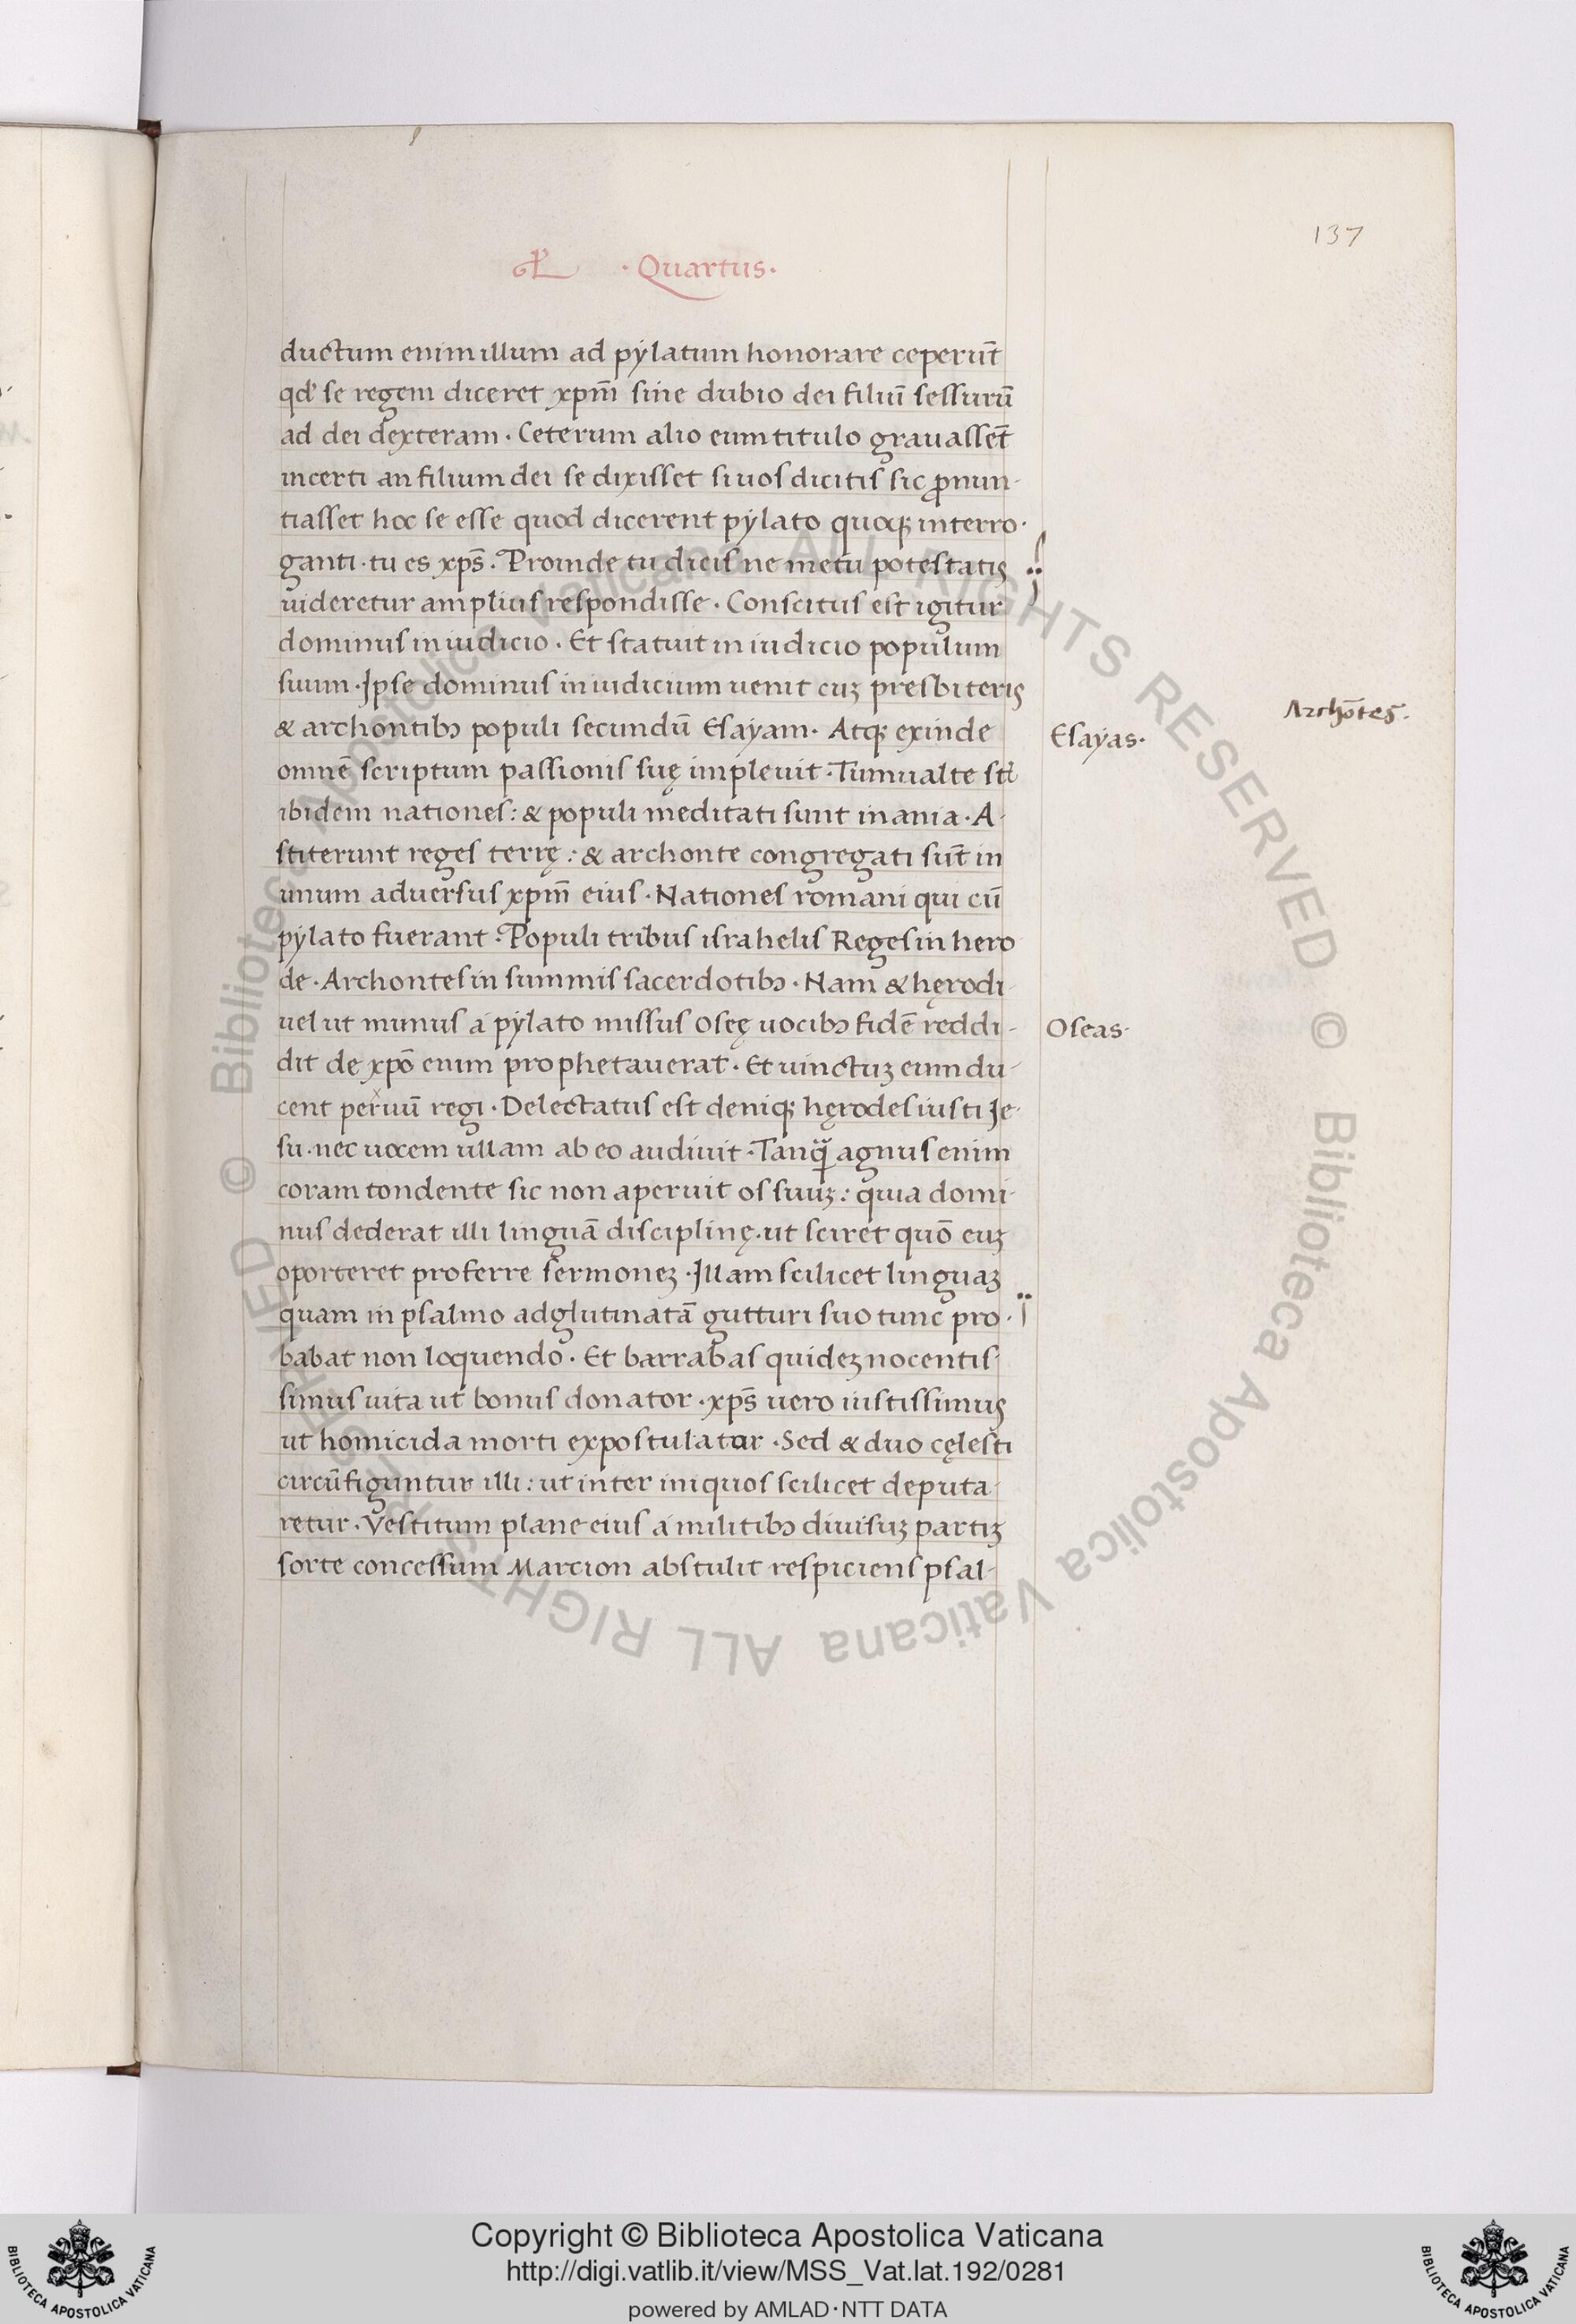 137
· Quartus ·
ductum enim illum ad pẏlatum honorare ceperūt
qd' se regem diceret xpm̄ sine dubio dei filiū sessurū
ad dei dexteram · Ceterum alio eum titulo grauassēt
incerti an filium dei se dixisset si uos dicitis sic ꝓnun-
tiasset hoc se esse quod dicerent pẏlato quoqꝫ interro-
ganti · tu es xps̄ · Proinde tu dicis ne metu potestatis
uideretur amplius respondisse · Conscitus est igitur
dominus in iudicio · Et statuit in iudicio populum
suum · Ipse dominus in iudicium uenit cuꝫ presbiteris
Archōtes ·
& archontibꝰ populi secundū Esaẏam · Atqꝫ exinde
Esaẏas ·
omnē scriptum passionis suę impleuit · Tumualte st̄
ibidem nationes : & populi meditati sunt inania · A-
stiterunt reges terrę : & archonte congregati sūt in
unum aduersus xpm̄ eius · Nationes romani qui cū
pẏlato fuerant · Populi tribus israhelis Reges in hero
de · Archontes in summis sacerdotibꝰ · Nam & hęrodi
uel ut munus a pẏlato missus oseę uocibꝰ fidē reddi-
Oseas ·
dit de xpō enim prophetauerat · Et uinctuꝫ eum du-
cent peruū regi · Delectatus est deniqꝫ hęrodes iusti Je-
su · nec uocem ullam ab eo audiuit · Tanq̄ agnus enim
coram tondente sic non aperuit os suuꝫ : quia domi-
nus dederat illi linguā disciplinę · ut sciret quō euꝫ
oporteret proferre sermoneꝫ · Illam scilicet linguaꝫ
quam in psalmo adglutinatā gutturi suo tunc pro-
babat non loquendo · Et barrabas quideꝫ nocentis-
simus uita ut bonus donator · xps̄ uero iustissimus
ut homicida morti expostulatur · Sed & duo cęlesti
circūfiguntur illi : ut inter iniquos scilicet deputa-
retur · Vestitum plane eius a militibꝰ diuisuꝫ partiꝫ
sorte concessum Marcion abstulit respiciens psal-
© Biblioteca Apostolica Vaticana ALL RIGHTS RESERVED © Biblioteca Apostolica Vaticana ALL RIGHTS RESERVED
Copyright © Biblioteca Apostolica Vaticana
http://digi.vatlib.it/view/MSS_Vat.lat.192/0281
powered by AMLAD·NTT DATA
BIBLIOTECA APOSTOLICA VATICANA
BIBLIOTECA APOSTOLICA VATICANA